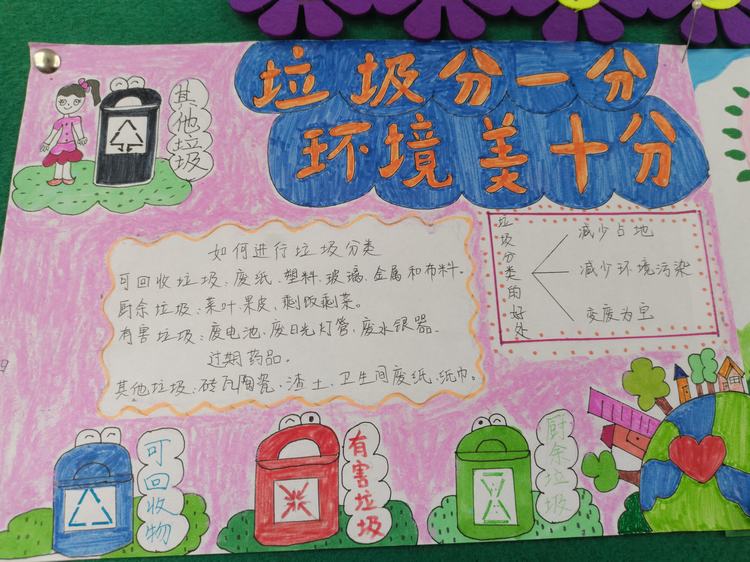 垃圾分一分
环境美十分
其他垃圾
如何进行垃圾分类
可回收垃圾：废纸、塑料、玻璃、金属和布料。
厨余垃圾：菜叶、果皮、剩饭剩菜。
有害垃圾：废电池、废日光灯管、废水银器、
过期药品。
其他垃圾：砖瓦陶瓷、渣土、卫生间废纸、纸巾。
垃圾分类的好处
减少占地
减少环境污染
变废为宝
可回收物
有害垃圾
厨余垃圾